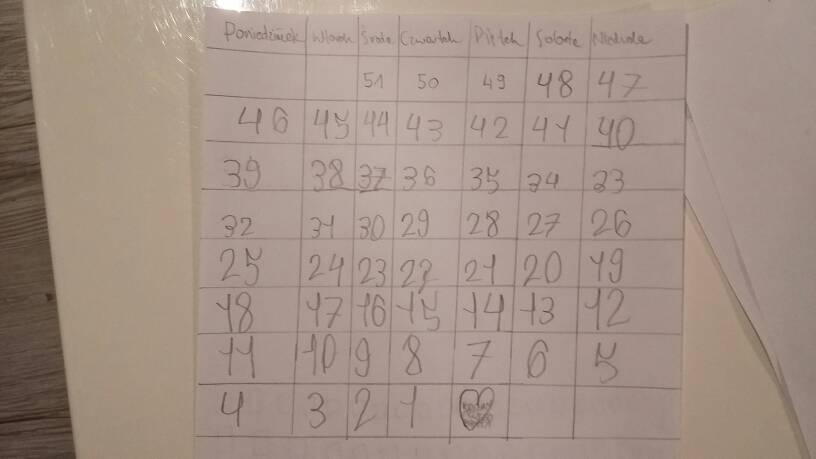 Poniedziałek Wtorek Środa Czwartek Piątek Sobota Niedziela
51 50 49 48 47
46 45 44 43 42 41 40
39 38 37 36 35 34 33
32 31 30 29 28 27 26
25 24 23 22 21 20 19
18 17 16 15 14 13 12
11 10 9 8 7 6 5
4 3 2 1